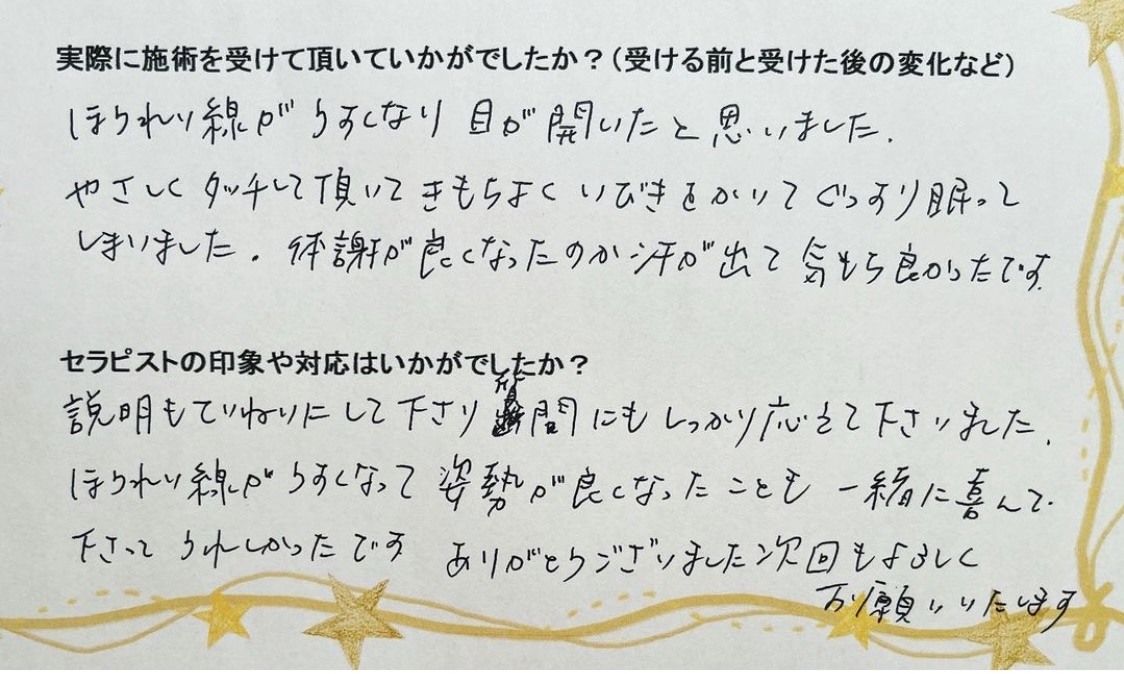 実際に施術を受けて頂いていかがでしたか？（受ける前と受けた後の変化など）
ほうれい線がうすくなり 目が開いたと思いました.
やさしくタッチして頂いてきもちよくいびきをかいてぐっすり眠って
しまいました. 体謝が良くなったのか汗が出て気もち良かったです.
セラピストの印象や対応はいかがでしたか？
説明もていねいにして下さり 質問にもしっかり応えて下さいました.
ほうれい線がうすくなって 姿勢が良くなったことも 一緒に喜んで.
下さって うれしかったです ありがとうございました 次回もよろしく
お願いいたします